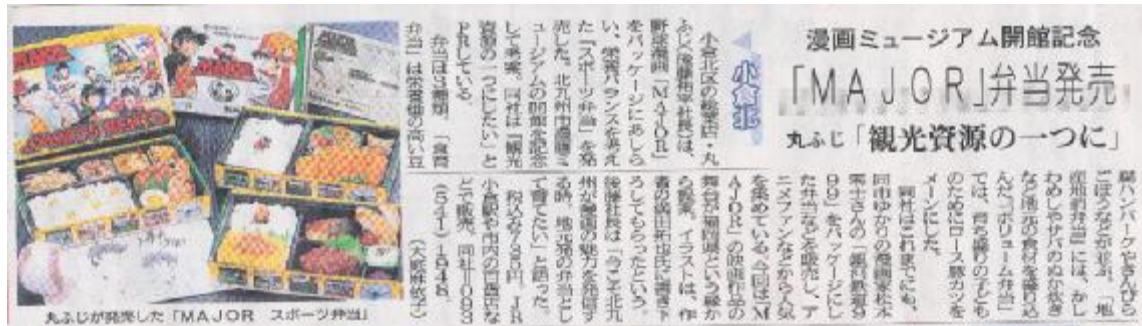 漫画ミュージアム開館記念
「MAJOR」弁当発売
丸ふじ「観光資源の一つに」
小倉北
小倉北区の総菜店・丸
ふじ(後藤
社長)は、
野球漫画「MAJOR」
をパッケージにあしら
い、栄養バランスを考え
た「スポーツ弁当」を発
売した。北九州市漫画ミ
ュージアムの開館を記念
して考案。同社は「観光
資源の一つにしたい」と
PRしている。
弁当は3種類。「食育
弁当」は栄養価の高い豆
腐ハンバーグやきんぴら
ごぼうなどが並ぶ。「地
産地消弁当」には、かし
わめしやサバのぬか炊き
など地元の食材を盛り込
んだ。「ボリューム弁当」
では、育ち盛りの子ども
のためにロース豚カツを
メーンにした。
同社はこれまでにも、
同市ゆかりの漫画家松本
零士さんの「銀河鉄道9
99」をパッケージにし
た弁当などを販売し、ア
ニメファンなどから人気
を集めている。今回は「M
AJOR」の映画作品の
舞台が福岡県という縁か
ら起案。イラストは、作
者の満田拓也氏に書き下
ろしてもらったという。
後藤社長は「今こそ北九
州が漫画の魅力を発信す
る時。地元発の弁当とし
て育てたい」と語った。
税込み780円。JR
小倉駅や市内の百貨店な
どで販売。同社=093
(541)1946。
丸ふじが発売した「MAJOR スポーツ弁当」